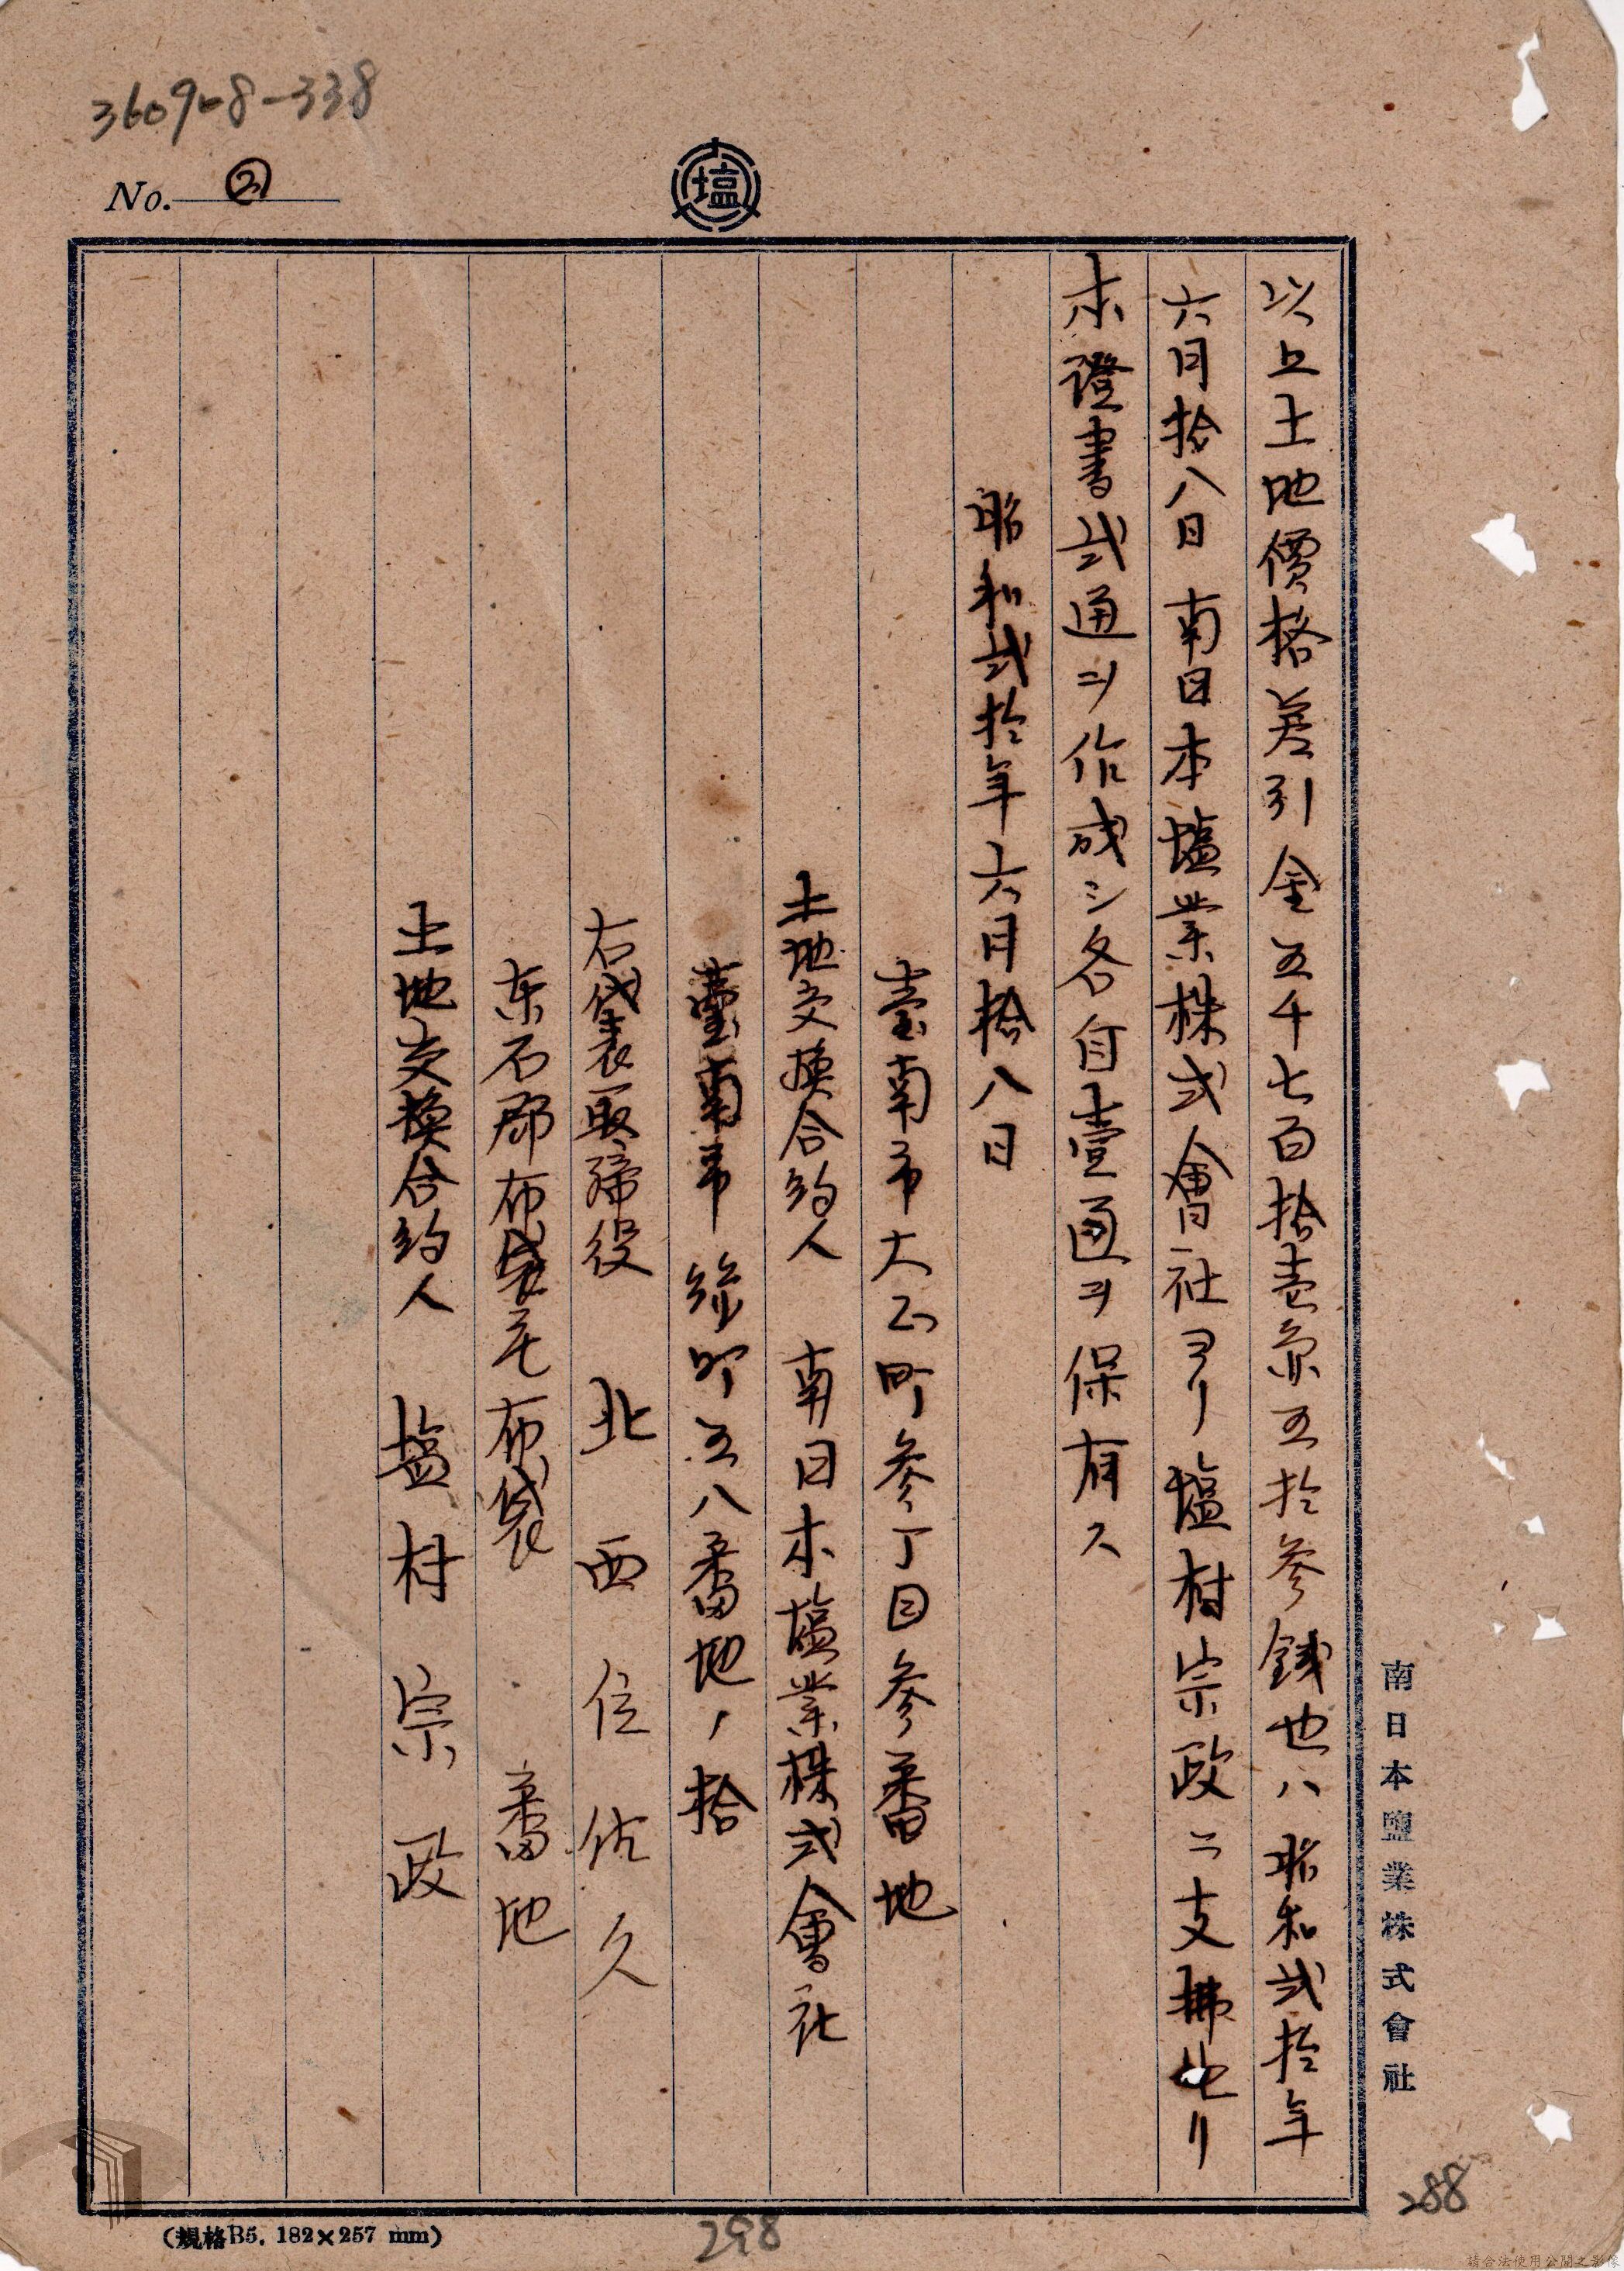 360908-338
No. ②
塩
以上土地價格差引金五千七百拾壱円五拾参銭也ハ昭和弍拾年
六月拾八日南日本塩業株式會社ヨリ塩村宗政ニ支拂セリ
本證書弍通ヲ作成シ各自壹通ヲ保有ス
昭和弍拾年六月拾八日
臺南市大正町参丁目参番地
土地交換合約人 南日本塩業株式會社
臺南市 町五八番地ノ拾
右代表取締役 北西位佐久
東石郡布袋庄布袋 番地
土地交換合約人 塩村宗政
南日本鹽業株式會社
(規格B5. 182×257 mm)
298
288
請合法使用公開之影像